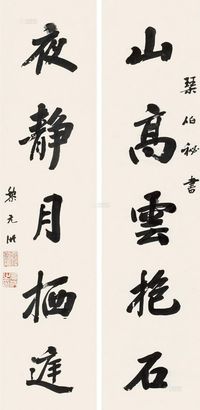 山高雲抱石
琹伯秘書
夜靜月栖庭
黎元洪